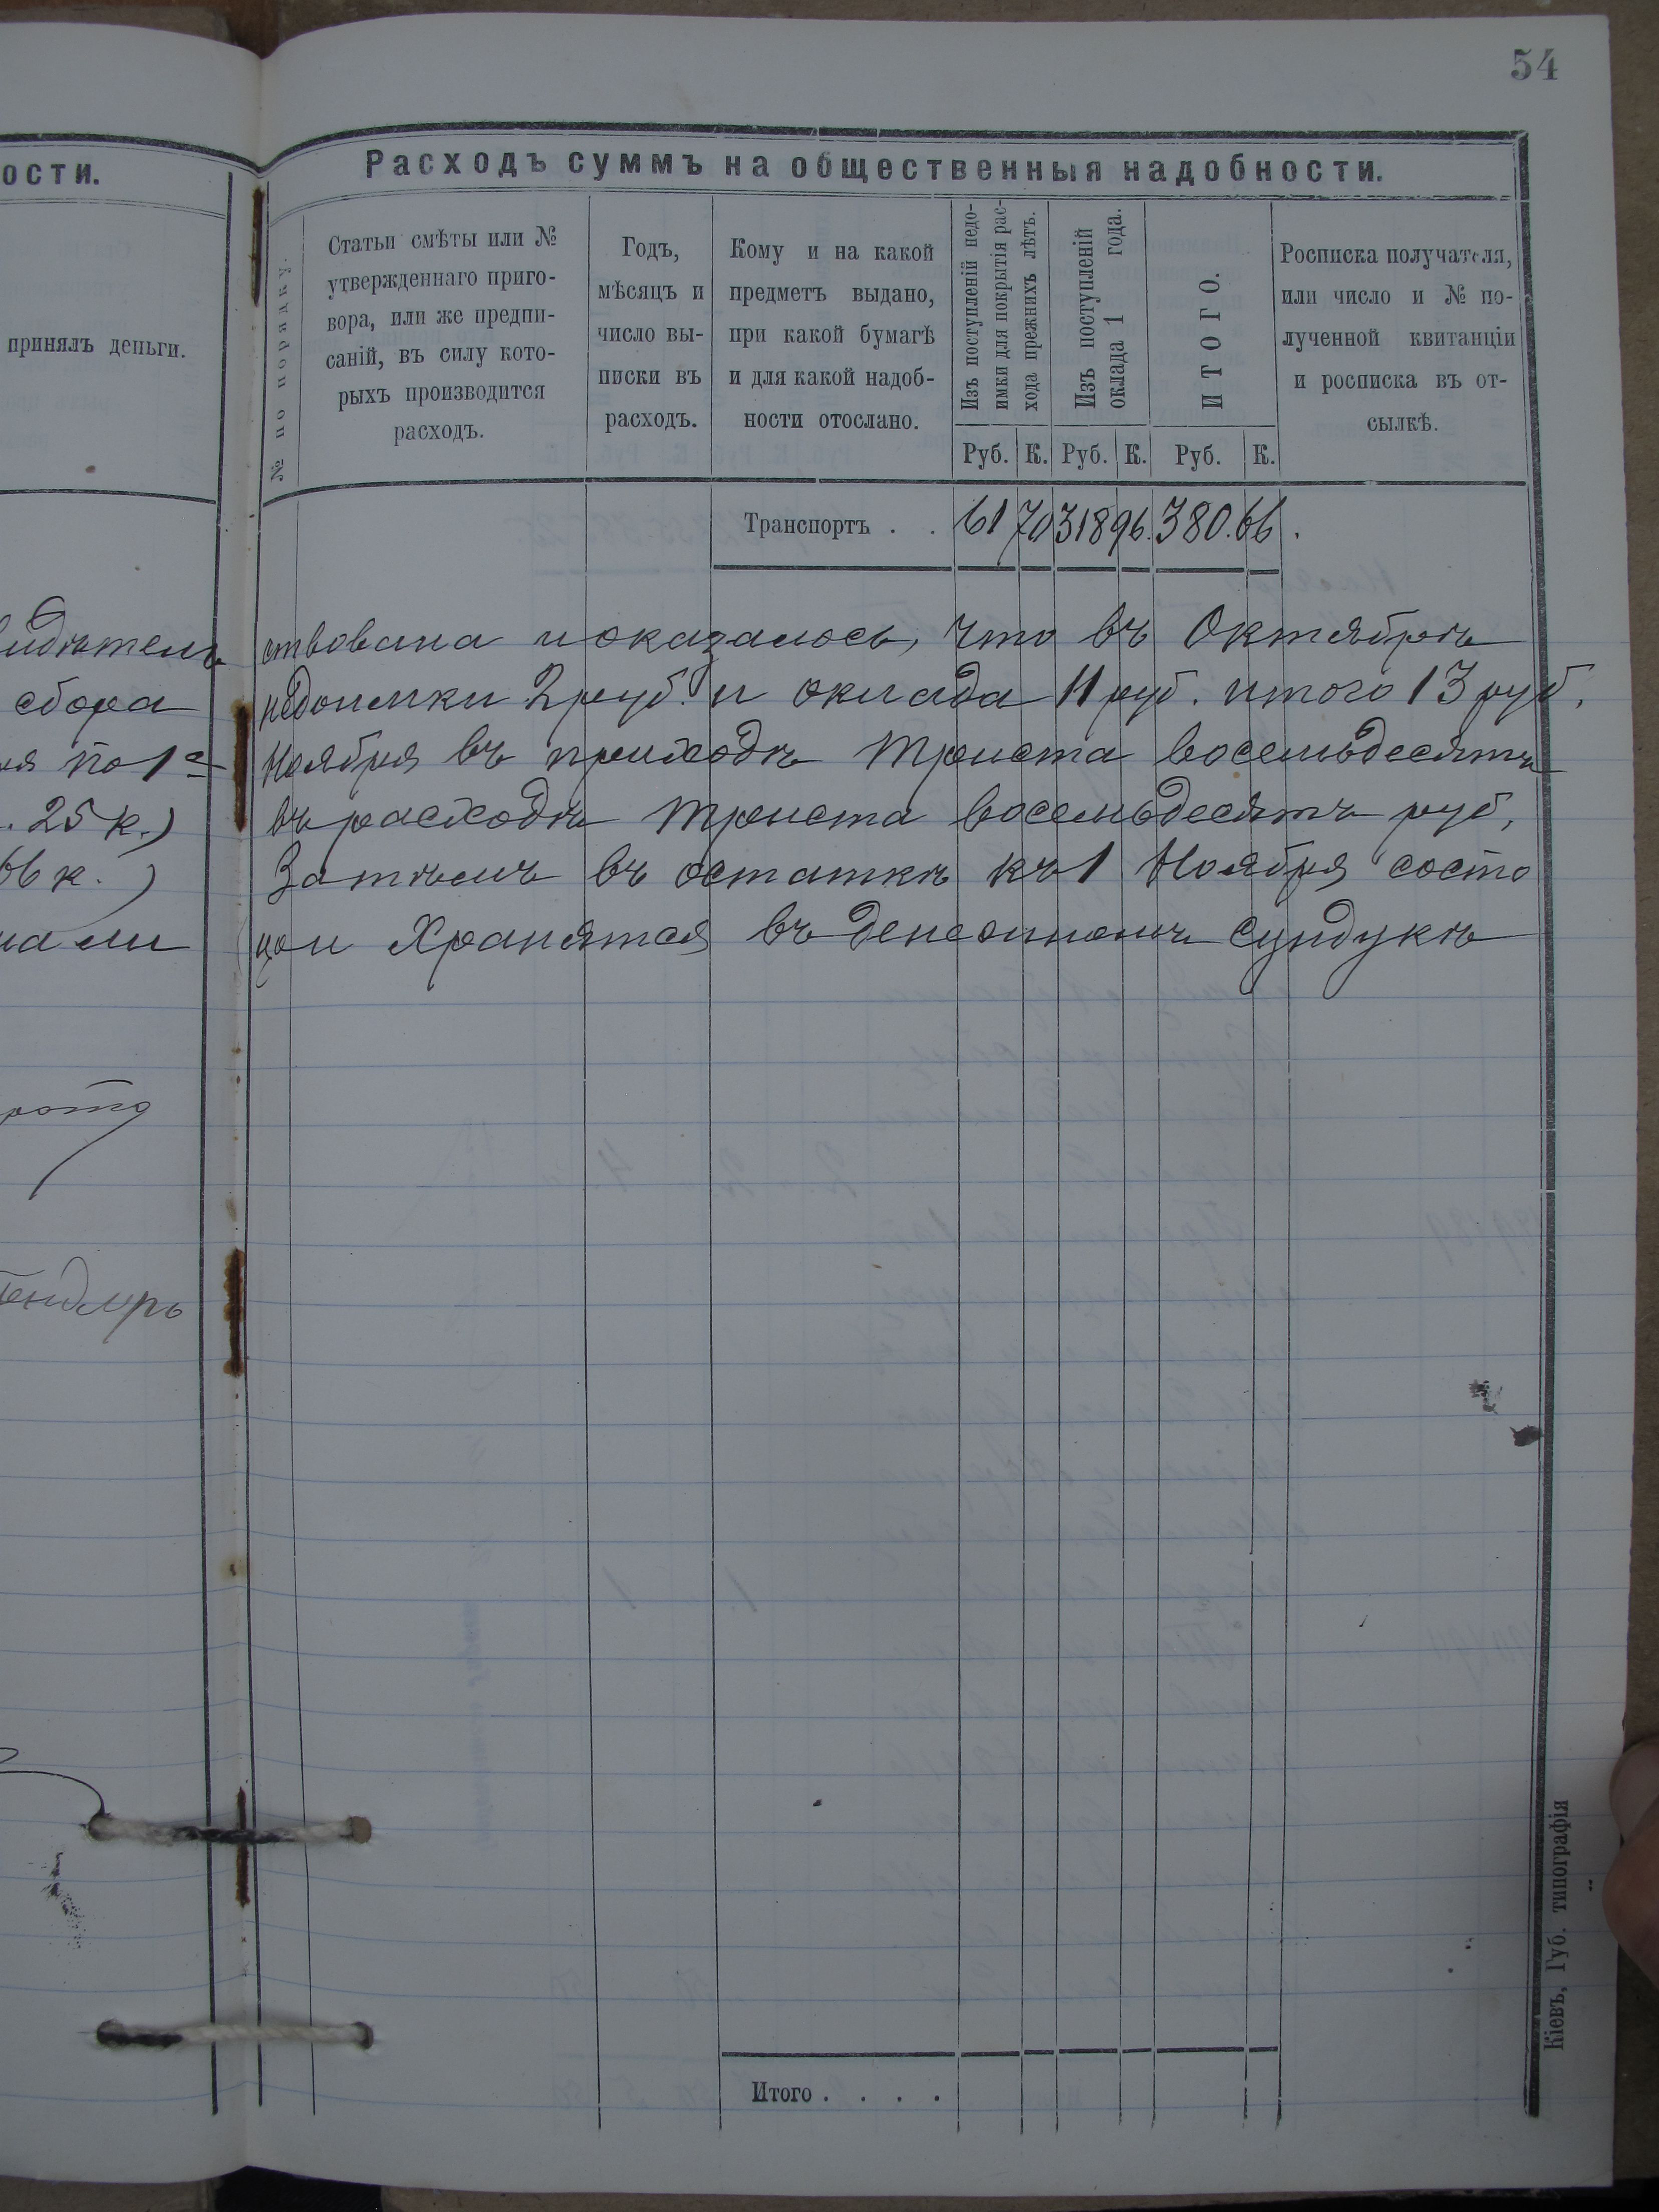 54
ости.
принялъ деньги.
идѣтель
сбора
ня по 1е
. 25 к.)
66 к. )
нали
тендлеръ
Расходъ суммъ на общественныя надобности.
№ по порядку.
Статьи смѣты или №
утвержденнаго приго-
вора, или же предпи-
саній, въ силу кото-
рыхъ производится
расходъ.
Годъ,
мѣсяцъ и
число вы-
писки въ
расходъ.
Кому и на какой
предметъ выдано,
при какой бумагѣ
и для какой надоб-
ности отослано.
Изъ поступленій недо-
имки для покрытія рас-
хода прежнихъ лѣтъ.
Изъ поступленій
оклада 1 года.
ИТОГО.
Росписка получателя,
или число и № по-
лученной квитанціи
и росписка въ от-
сылкѣ.
Руб. К. Руб. К. Руб. К.
Транспортъ . . 61 70 318 96. 380. 66 .
ствована и оказалось, что въ Октябрѣ
недоимки 2 руб. и оклада 11 руб. итого 13 руб.
Ноября въ приходѣ триста восемьдесятъ
въ расходѣ триста восемьдесятъ руб.
Затѣмъ въ остаткѣ къ 1 Ноября состо
хранятся въ денежномъ сундукѣ
Итого . . . .
Кіевъ, Губ. типографія